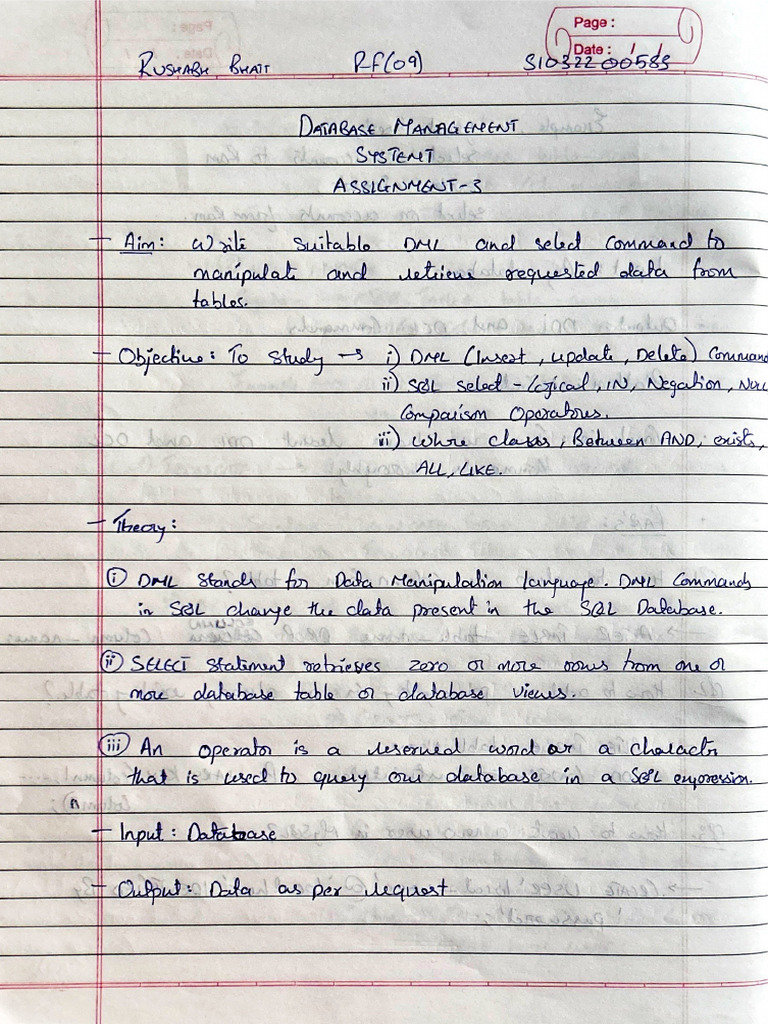 Page :
Date : / /
RUSHABH BHATT PF(09) S1032200583
DATABASE MANAGEMENT
SYSTEM
ASSIGNMENT-3
- Aim: Write suitable DML and select command to
manipulate and retrieve requested data from
tables.
- Objective: To Study → i) DML (Insert, update, Delete) Command
ii) SQL select - Logical, IN, Negation, NULL
Comparison Operators.
iii) Where clause, Between AND, exists,
ALL, LIKE.
- Theory:
i DML Stands for Data Manipulation language. DML Commands
in SQL change the data present in the SQL Database.
ii SELECT Statement retrieves zero or more rows from one or
more database table or database views.
iii An operator is a reserved word or a character
that is used to query our database in a SQL expression.
- Input: Database
- Output: Data as per request